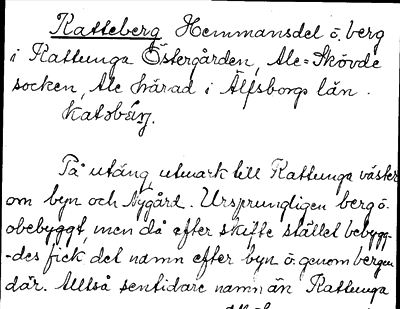 Katteberg Hemmansdel ö. berg
i Kattunga Östergården, Ale-Skövde
socken, Ale härad i Älfsborgs län.
Katobärj.
På utäng utmark till Kattunga väster
om byn och Nygård. Ursprungligen berg ö.
obebyggt, men då efter skifte stället bebygg-
-des fick det namn efter byn ö. genom bergen
där. Alltså sentidare namn än Kattunga